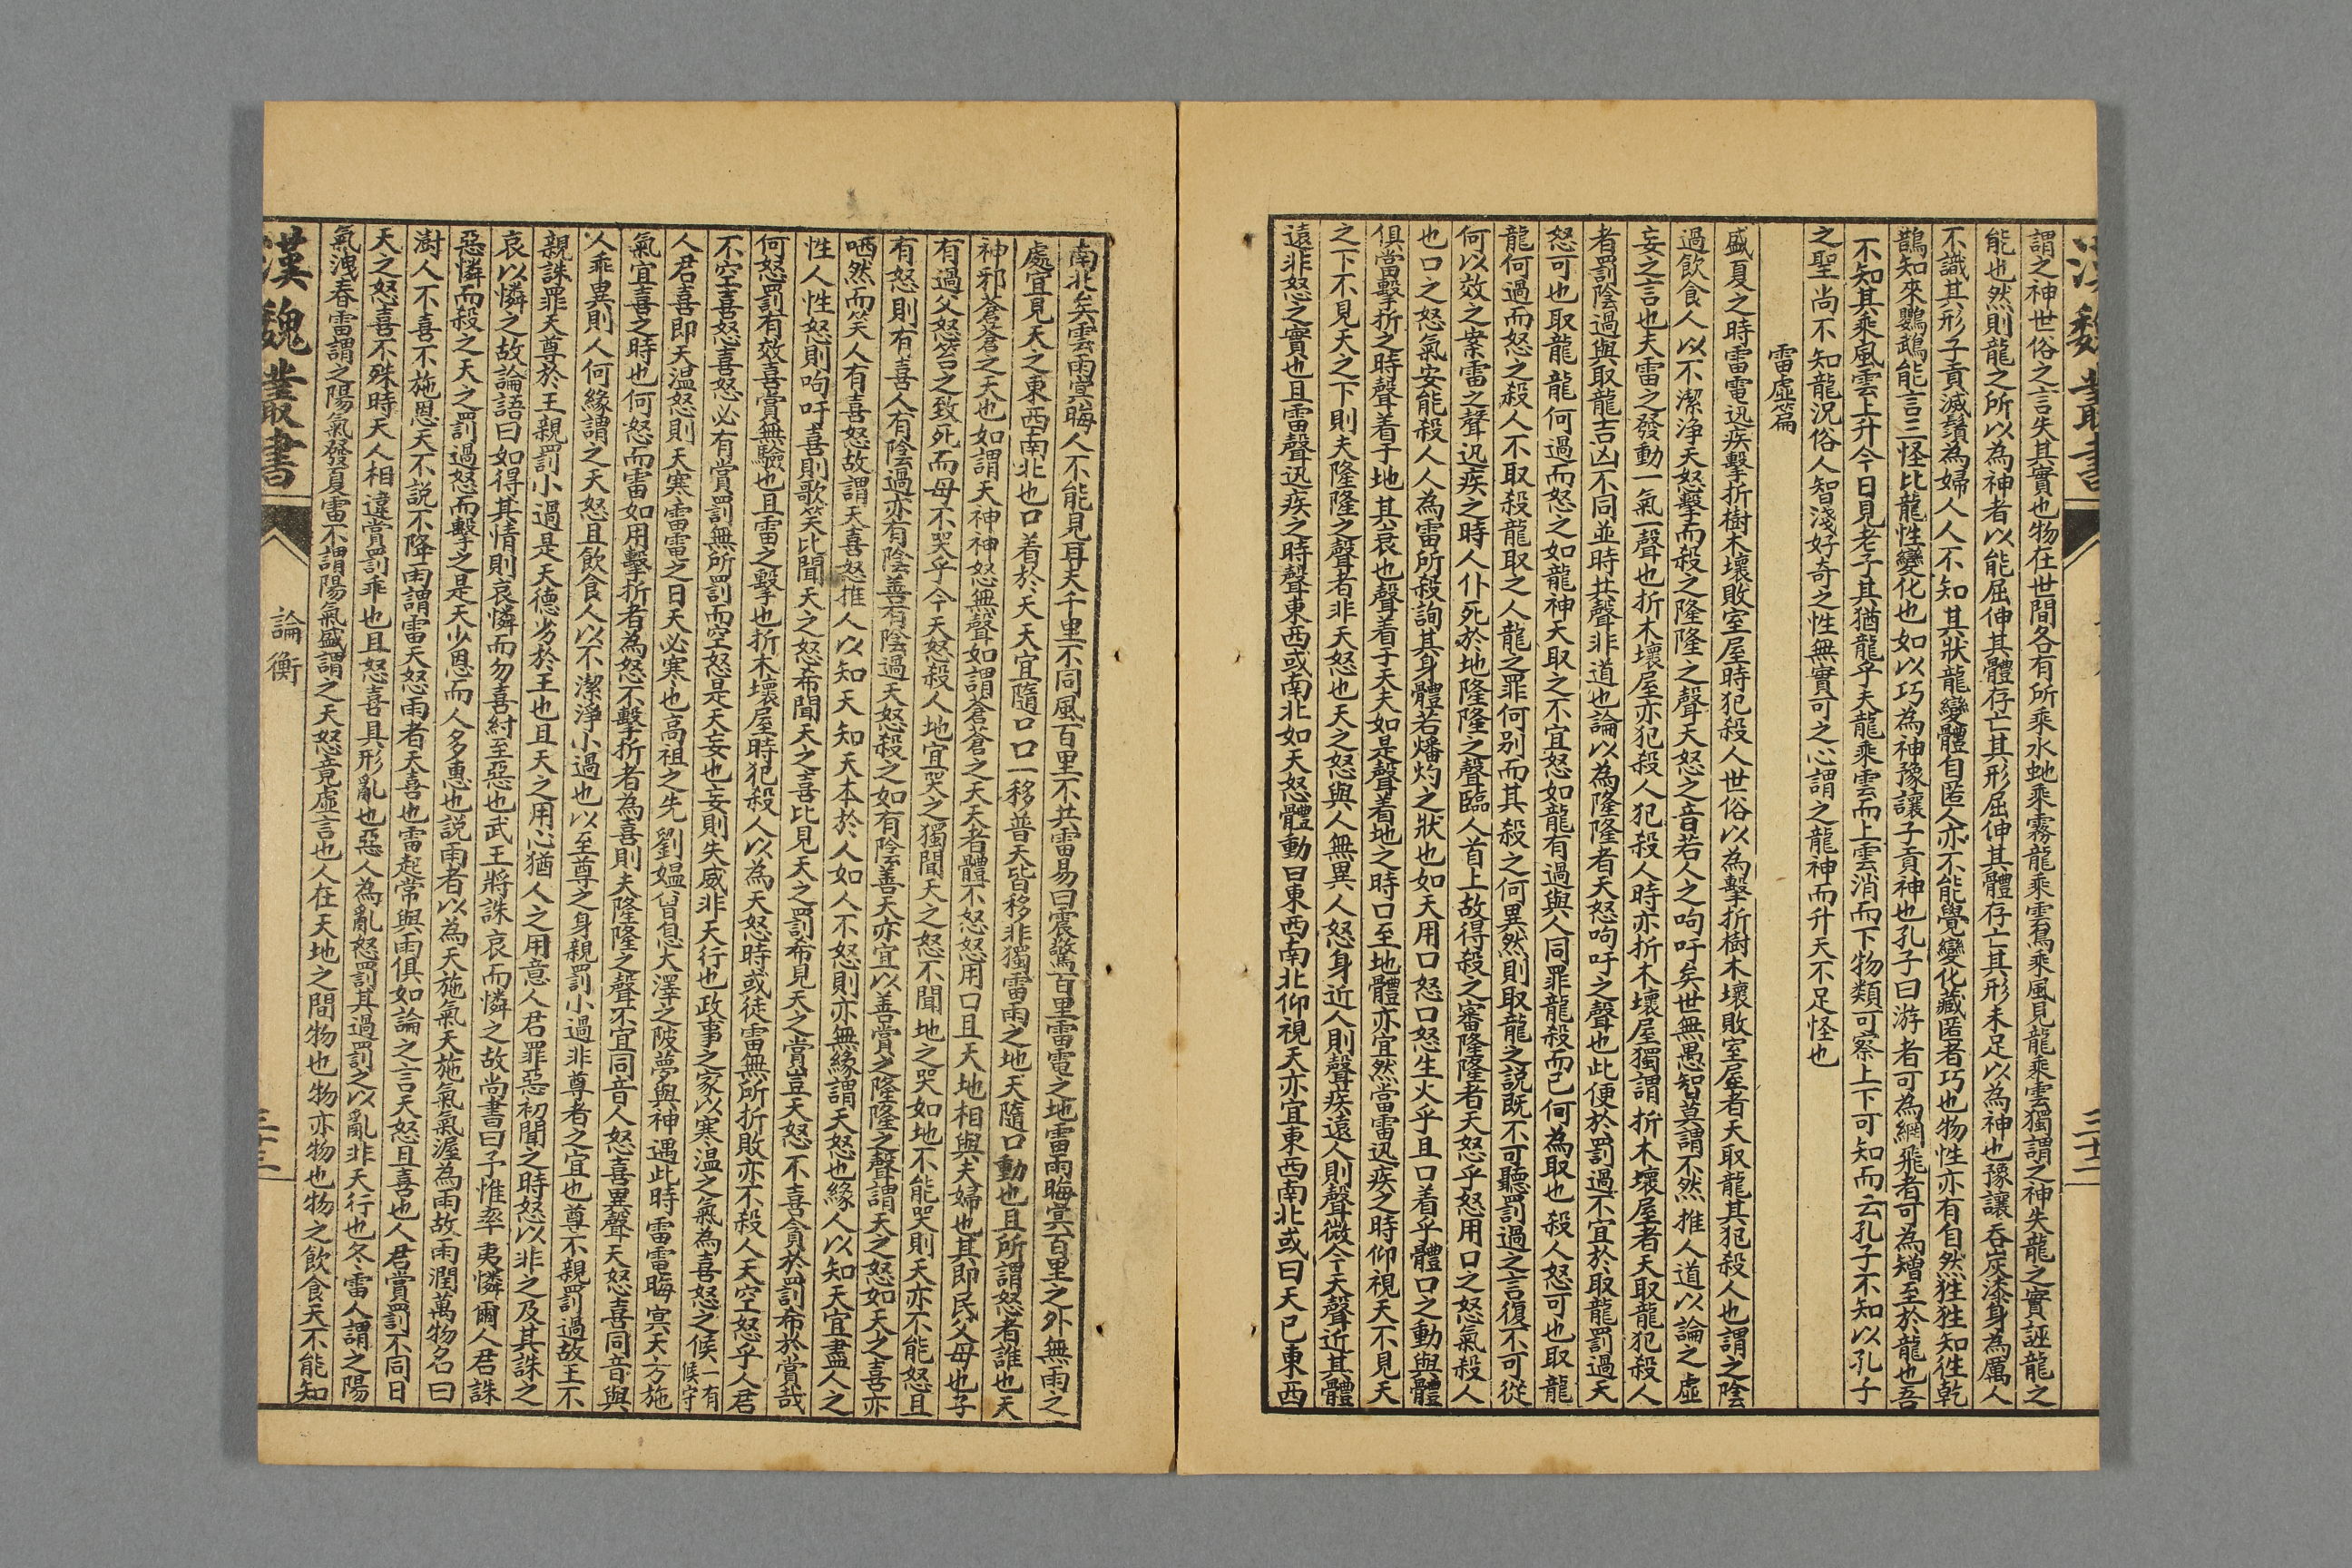 漢魏叢書
三十二
謂之神世俗之言失其實也物在世間各有所乘水虵乘霧龍乘雲鳥乘風見龍乘雲獨謂之神失龍之實誣龍之
能也然則龍之所以為神者以能屈伸其體存亡其形屈伸其體存亡其形未足以為神也豫讓吞炭漆身為厲人
不識其形子貢滅鬚為婦人人不知其狀龍變體自匿人亦不能覺變化藏匿者巧也物性亦有自然狌狌知徃乾
鵲知來鸚鵡能言三怪比龍性變化也如以巧為神豫讓子貢神也孔子曰游者可為網飛者可為矰至於龍也吾
不知其乘風雲上升今日見老子其猶龍乎夫龍乘雲而上雲消而下物類可察上下可知而云孔子不知以孔子
之聖尚不知龍況俗人智淺好奇之性無實可之心謂之龍神而升天不足怪也
雷虛篇
盛夏之時雷電迅疾擊折樹木壞敗室屋時犯殺人世俗以為擊折樹木壞敗室屋者天取龍其犯殺人也謂之陰
過飲食人以不潔淨天怒擊而殺之隆隆之聲天怒之音若人之呴吁矣世無愚智莫謂不然推人道以論之虛
妄之言也夫雷之發動一氣一聲也折木壞屋亦犯殺人犯殺人時亦折木壞屋獨謂折木壞屋者天取龍犯殺人
者罰陰過與取龍吉凶不同並時共聲非道也論以為隆隆者天怒呴吁之聲也此便於罰過不宜於取龍罰過天
怒可也取龍龍何過而怒之如龍神天取之不宜怒如龍有過與人同罪龍殺而已何為取也殺人怒可也取龍
龍何過而怒之殺人不取殺龍取之人龍之罪何别而其殺之何異然則取龍之說既不可聽罰過之言復不可從
何以效之案雷之聲迅疾之時人仆死於地隆隆之聲臨人首上故得殺之審隆隆者天怒乎怒用口之怒氣殺人
也口之怒氣安能殺人人為雷所殺詢其身體若燔灼之狀也如天用口怒口怒生火乎且口着乎體口之動與體
俱當擊折之時聲着于地其衰也聲着于天夫如是聲着地之時口至地體亦宜然當雷迅疾之時仰視天不見天
之下不見天之下則夫隆隆之聲者非天怒也天之怒與人無異人怒身近人則聲疾遠人則聲微今天聲近其體
遠非怒之實也且雷聲迅疾之時聲東西或南北如天怒體動口東西南北仰視天亦宜東西南北或曰天已東西
南北矣雲雨㝠晦人不能見耳夫千里不同風百里不共雷易曰震驚百里雷電之地雷雨晦㝠百里之外無雨之
處宜見天之東西南北也口着於天天宜隨口口一移普天皆移非獨雷雨之地天隨口動也且所謂怒者誰也天
神邪蒼蒼之天也如謂天神神怒無聲如謂蒼蒼之天天者體不怒怒用口且天地相與夫婦也其即民父母也子
有過父怒笞之致死而母不哭乎今天怒殺人地宜哭之獨聞天之怒不聞地之哭如地不能哭則天亦不能怒且
有怒則有喜人有陰過亦有陰善有陰過天怒殺之如有陰善天亦宜以善賞之隆隆之聲謂天之怒如天之喜亦
哂然而笑人有喜怒故謂天喜怒推人以知天知天本於人如人不怒則亦無緣謂天怒也緣人以知天宜盡人之
性人性怒則呴吁喜則歌笑比聞天之怒希聞天之喜比見天之罰希見天之賞豈天怒不喜貪於罰希於賞哉
何怒罰有效喜賞無驗也且雷之擊也折木壞屋時犯殺人以為天怒時或徒雷無所折敗亦不殺人天空怒乎人君
不空喜怒喜怒必有賞罰無所罰而空怒是天妄也妄則失威非天行也政事之家以寒溫之氣為喜怒之候一有候守
人君喜即天溫怒則天寒雷雷之日天必寒也高祖之先劉媪曾息大澤之陂夢與神遇此時雷電晦㝠天方施
氣宜喜之時也何怒而雷如用擊折者為怒不擊折者為喜則夫隆隆之聲不宜同音人怒喜異聲天怒喜同音與
人乖異則人何緣謂之天怒且飲食人以不潔淨小過也以至尊之身親罰小過非尊者之宜也尊不親罰過故王不
親誅罪天尊於王親罰小過是天德劣於王也且天之用心猶人之用意人君罪惡初聞之時怒以非之及其誅之
哀以憐之故論語曰如得其情則哀憐而勿喜紂至惡也武王將誅哀而憐之故尚書曰予惟率夷憐爾人君誅
惡憐而殺之天之罰過怒而擊之是天少恩而人多惠也說雨者以為天施氣天施氣氣渥為雨故雨潤萬物名曰
澍人不喜不施恩天不說不降雨謂雷天怒雨者天喜也雷起常與雨俱如論之言天怒且喜也人君賞罰不同日
天之怒喜不殊時天人相違賞罰乖也且怒喜具形亂也惡人為亂怒罰其過罰之以亂非天行也冬雷人謂之陽
氣洩春雷謂之陽氣發夏雷不謂陽氣盛謂之天怒竟虛言也人在天地之間物也物亦物也物之飲食天不能知
漢魏叢書
論衡
三十三